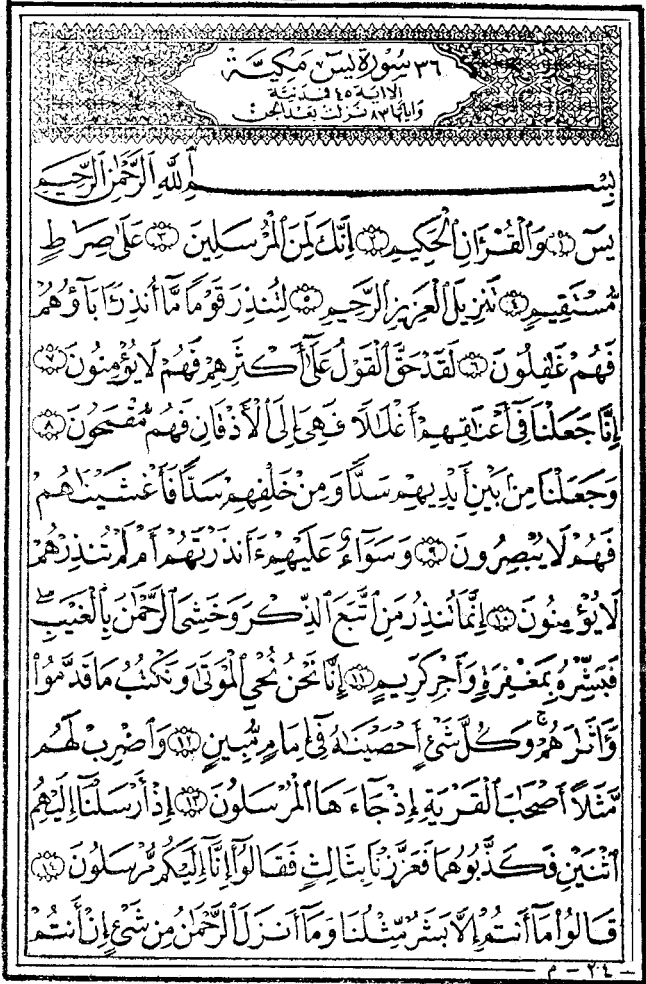 ٣٦ سُورَةِ يسٓ مَكِيَّة
الا اية ٤٥ فمدنية
واياتها ٨٣ نزلت بعد الجن
بِسْمِ ٱللَّهِ ٱلرَّحْمَٰنِ ٱلرَّحِيمِ
يسٓ ۝١ وَٱلْقُرْءَانِ ٱلْحَكِيمِ ۝٢ إِنَّكَ لَمِنَ ٱلْمُرْسَلِينَ ۝٣ عَلَىٰ صِرَٰطٍ
مُّسْتَقِيمٍ ۝٤ تَنزِيلَ ٱلْعَزِيزِ ٱلرَّحِيمِ ۝٥ لِتُنذِرَ قَوْمًا مَّآ أُنذِرَ ءَابَآؤُهُمْ
فَهُمْ غَٰفِلُونَ ۝٦ لَقَدْ حَقَّ ٱلْقَوْلُ عَلَىٰٓ أَكْثَرِهِمْ فَهُمْ لَا يُؤْمِنُونَ ۝٧
إِنَّا جَعَلْنَا فِىٓ أَعْنَٰقِهِمْ أَغْلَٰلًا فَهِىَ إِلَى ٱلْأَذْقَانِ فَهُم مُّقْمَحُونَ ۝٨
وَجَعَلْنَا مِنۢ بَيْنِ أَيْدِيهِمْ سَدًّا وَمِنْ خَلْفِهِمْ سَدًّا فَأَغْشَيْنَٰهُمْ
فَهُمْ لَا يُبْصِرُونَ ۝٩ وَسَوَآءٌ عَلَيْهِمْ ءَأَنذَرْتَهُمْ أَمْ لَمْ تُنذِرْهُمْ
لَا يُؤْمِنُونَ ۝١٠ إِنَّمَا تُنذِرُ مَنِ ٱتَّبَعَ ٱلذِّكْرَ وَخَشِىَ ٱلرَّحْمَٰنَ بِٱلْغَيْبِ ۖ
فَبَشِّرْهُ بِمَغْفِرَةٍ وَأَجْرٍ كَرِيمٍ ۝١١ إِنَّا نَحْنُ نُحْىِ ٱلْمَوْتَىٰ وَنَكْتُبُ مَا قَدَّمُوا۟
وَءَاثَٰرَهُمْ ۚ وَكُلَّ شَىْءٍ أَحْصَيْنَٰهُ فِىٓ إِمَامٍ مُّبِينٍ ۝١٢ وَٱضْرِبْ لَهُم
مَّثَلًا أَصْحَٰبَ ٱلْقَرْيَةِ إِذْ جَآءَهَا ٱلْمُرْسَلُونَ ۝١٣ إِذْ أَرْسَلْنَآ إِلَيْهِمُ
ٱثْنَيْنِ فَكَذَّبُوهُمَا فَعَزَّزْنَا بِثَالِثٍ فَقَالُوٓا۟ إِنَّآ إِلَيْكُم مُّرْسَلُونَ ۝١٤
قَالُوا۟ مَآ أَنتُمْ إِلَّا بَشَرٌ مِّثْلُنَا وَمَآ أَنزَلَ ٱلرَّحْمَٰنُ مِن شَىْءٍ إِنْ أَنتُمْ
– ٢٤ – م